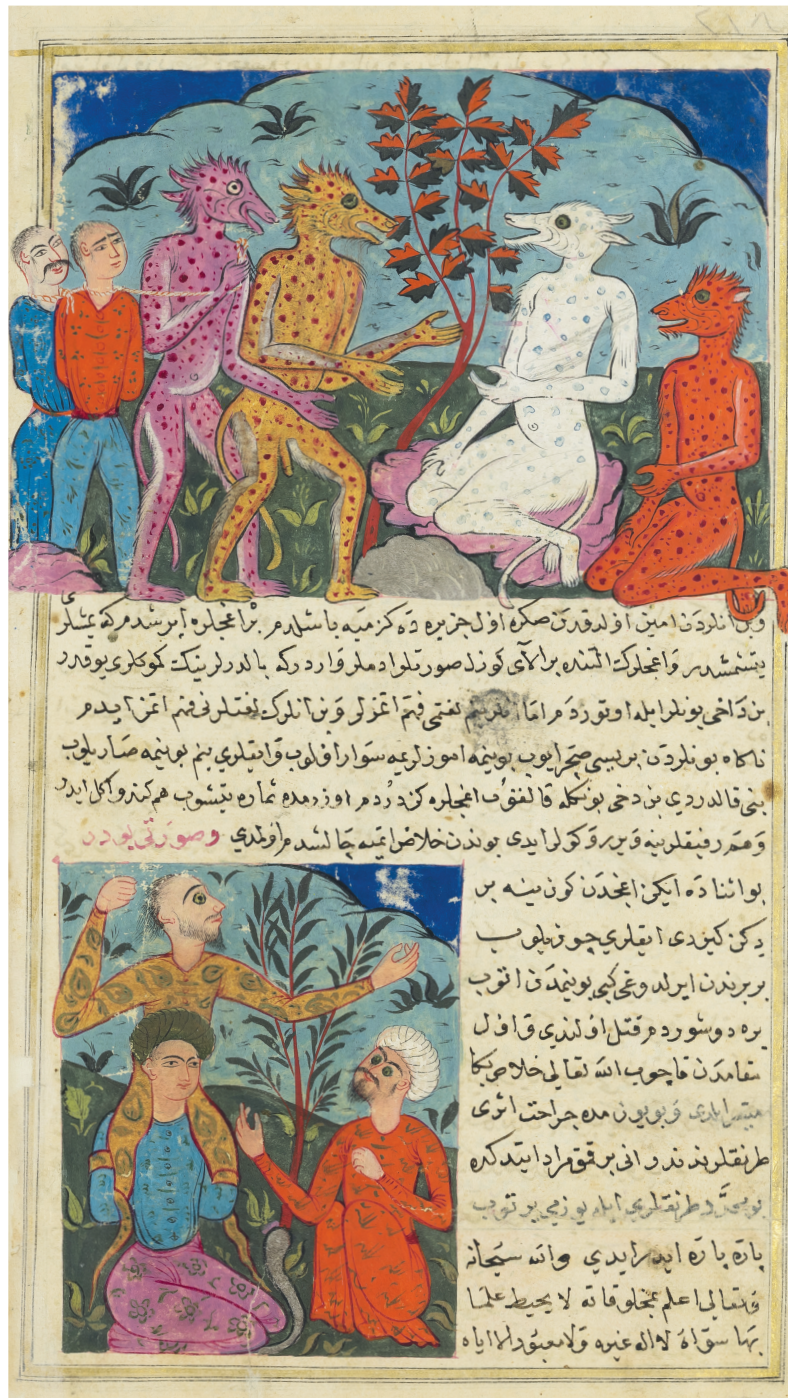 وبن انلردن امین اولدقدن صكره اول جزیره ده كزمیه باشلدم بر اغجلره ایرشدم كه یمشلری
یتشمشدر و اغجلرك التنده بر الای كوزل صورتلو ادملر واردر كه بالدرلرینك كموكلری یوقدر
بن داخی بونلر ایله اوتوردم اما انلر بنم لغتمی فهم اتمزلر و بن انلرك لغتلرنی فهم اتمز ایدم
ناكاه بونلردن بریسی صچرایوب بوینمه اموزلریمه سوار اولوب و ایقلری بنم بوینمه صاریلوب
بنی قالدردی بن دخی بونكله قالقوب اغجلره كزدردم اوزرمده ثماره یتشوب هم كندو اكل ایدر
و هم رفیقلرینه ویررو كولر ایدی بوندن خلاص اتمیه چالشدم اولمدی وصورتی بودر
بو اثناده ایكن اغجدن كوزینه بر
دكن كیردی ایقلری چوزیلوب
بربرندن ایرلدوغی كبی بوینمدن اتوب
یره دوشوردم قتل اولندی و اول
مقامدن قاچوب الله تعالی خلاص بكا
میسر ایلدی و بویونمده جراحت اثری
طرنقلرندندر و انی برقق مراد ایتدكده
طرنقلری ایله یوزمی یرتوب
پاره پاره ایدر ایدی والله سبحانه
وتعالی اعلم بمخلوقاته لا یحیط علما
بها سواه لا اله غیره ولا معبود الا ایاه